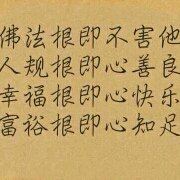 佛法根即不害他
人规根即心善良
幸福根即心快乐
富裕根即心知足